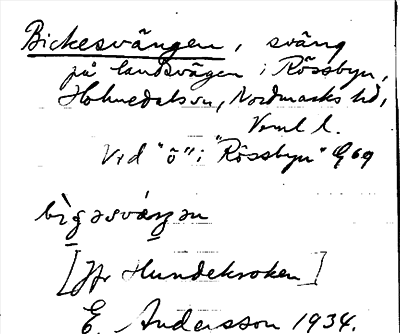 Bickesvängen, sväng
på landsvägen i Rössbyn,
Holmedalssn, Nordmarks hd,
Verml l.
Vid "ö" i "Rössbyn" G 69
bìgəsvä́ŋən
[Jfr Hundekroken]
E. Andersson 1934.